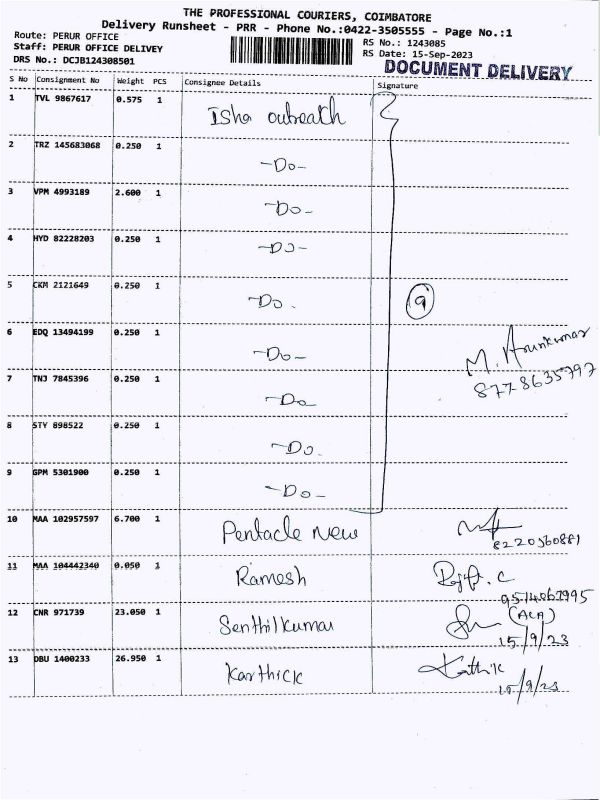 THE PROFESSIONAL COURIERS, COIMBATORE
Delivery Runsheet - PRR - Phone No.:0422-3505555 - Page No.:1
Route: PERUR OFFICE
Staff: PERUR OFFICE DELIVEY
DRS No.: DCJB124308501
RS No.: 1243085
RS Date: 15-Sep-2023
DOCUMENT DELIVERY
S No Consignment No Weight PCS Consignee Details Signature
1 TVL 9867617 0.575 1 Isha outreach
2 TRZ 145683068 0.250 1 -Do-
3 VPM 4993189 2.600 1 -Do-
4 HYD 82228203 0.250 1 -Do-
5 CKM 2121649 0.250 1 -Do. 9
6 EDQ 13494199 0.250 1 -Do- M. Arunkumar
8778635797
7 TNJ 7845396 0.250 1 -Do
8 STY 898522 0.250 1 -Do.
9 GPM 5301900 0.250 1 -Do-
10 MAA 102957597 6.700 1 Pentacle New
8220560881
11 MAA 104442340 0.050 1 Ramesh
12 CNR 971739 23.050 1 Senthilkumar (ACA)
15/9/23
13 DBU 1400233 26.950 1 Karthick Karthik
15/9/23